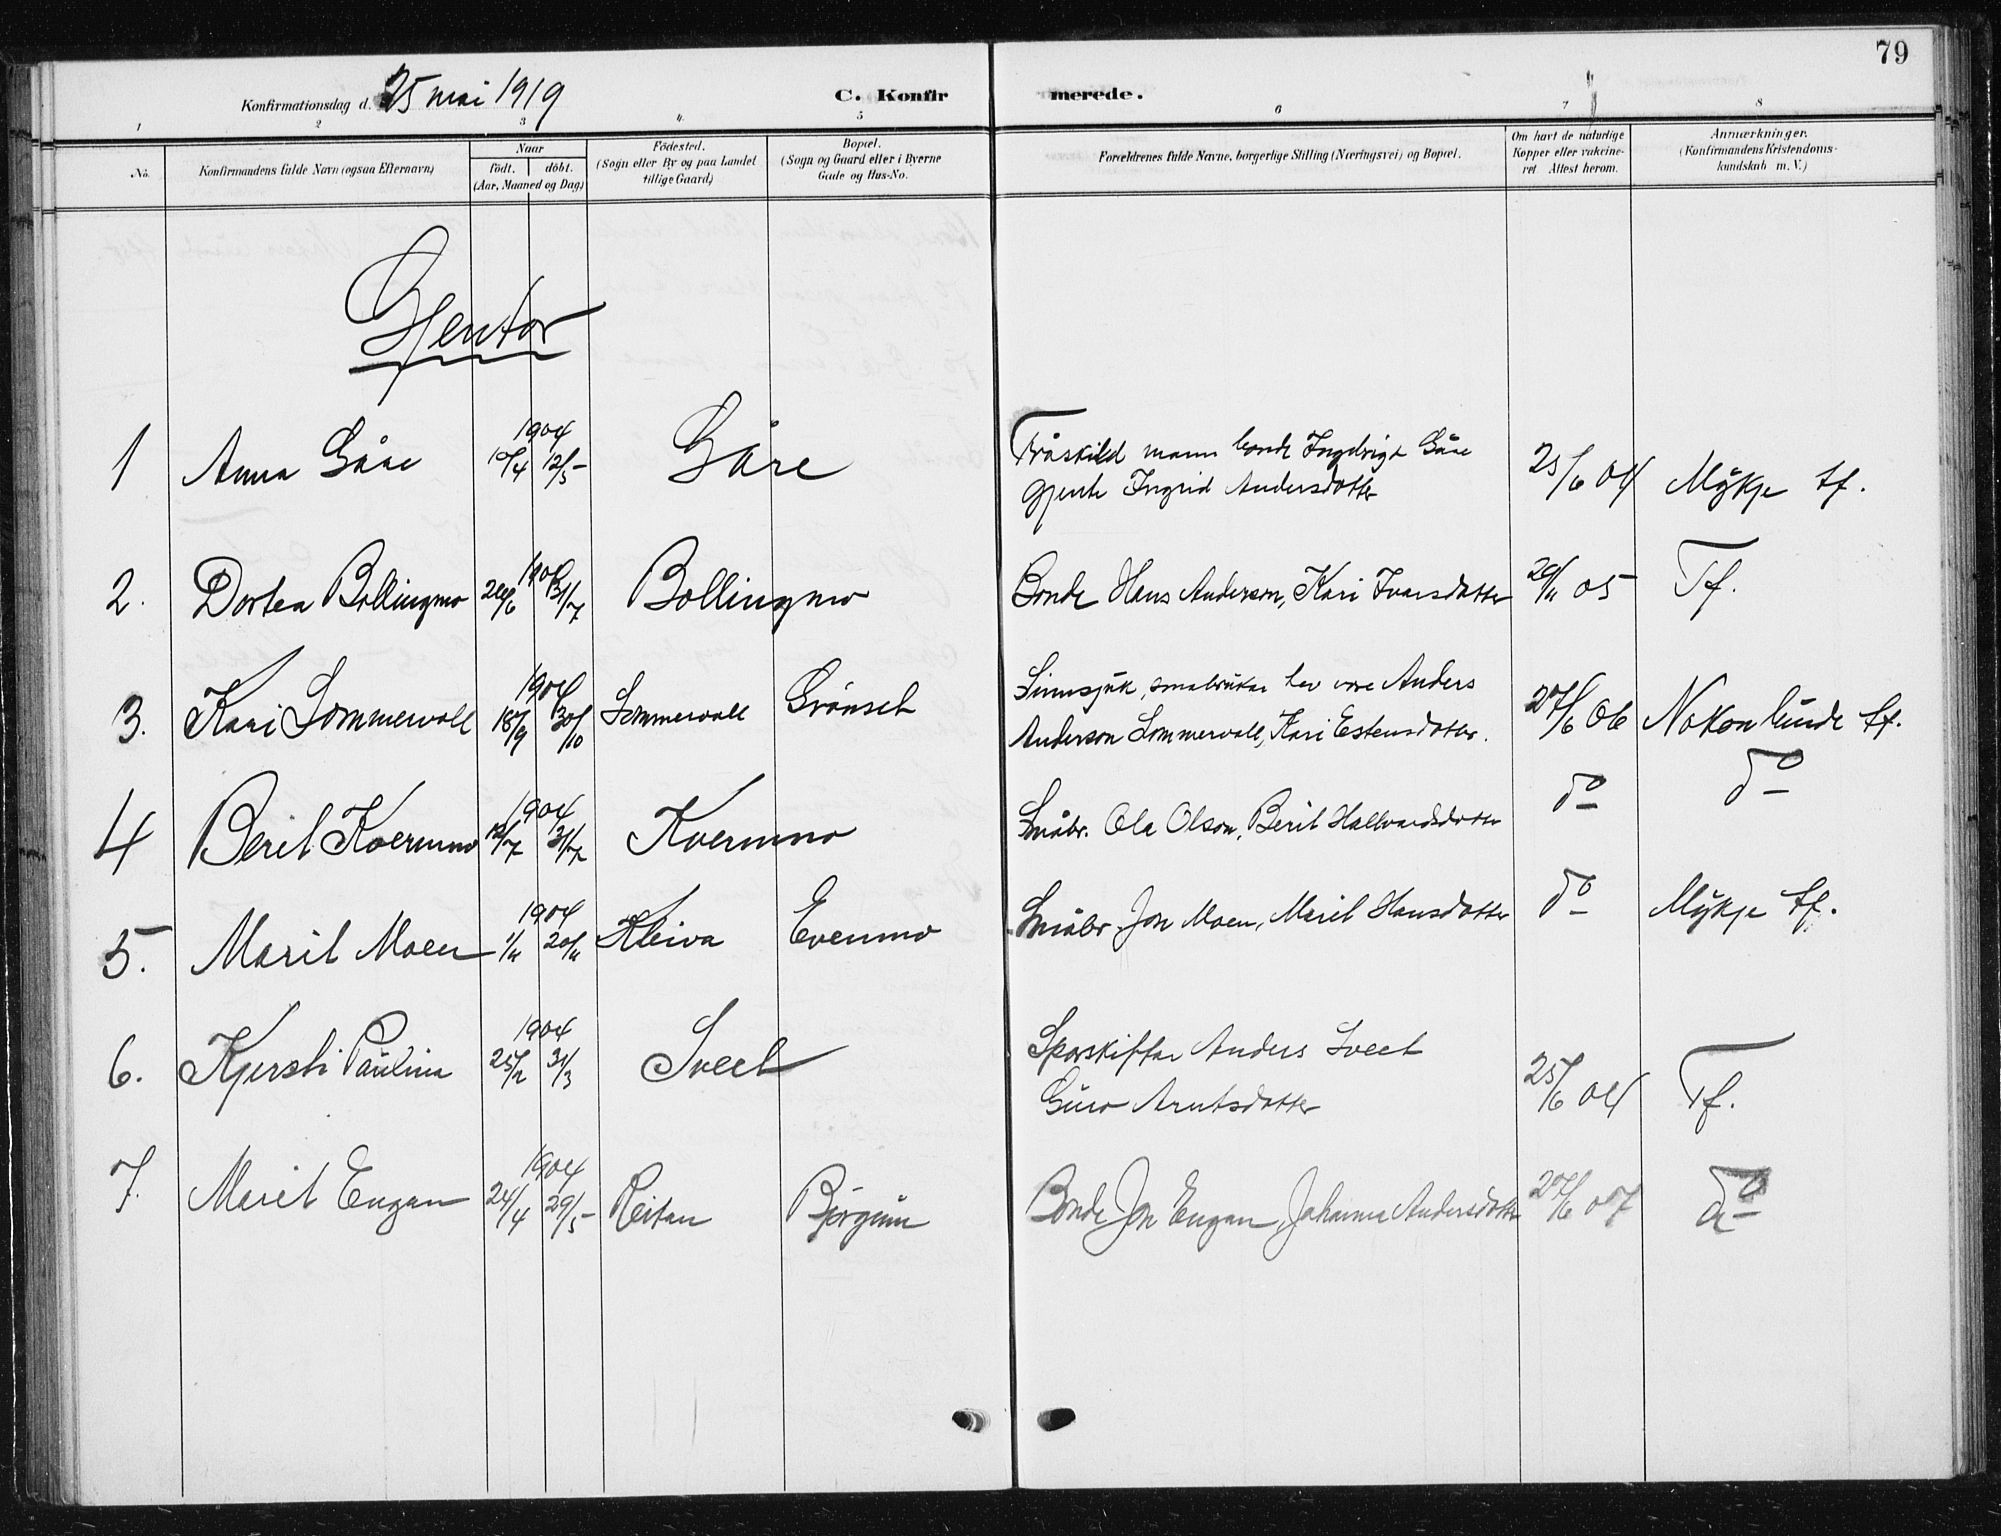 79
Konfirmationsdag d. 25 mai 1919 C. Konfirmerede.
1 2 3 4 5 6 7 8
No. Konfirmandens fulde Navn (ogsaa Efternavn) Naar födt. döbt. (Aar, Maaned og Dag) Födested. (Sogn eller By og paa Landet tillige Gaard) Bopæl. (Sogn og Gaard eller i Byerne Gade og Hus-No. Forældrenes fulde Navne, borgerlige Stilling (Næringsvei) og Bopæl. Om havt de naturlige Kopper eller vakcineret Attest herom. Anmærkninger. (Konfirmandens Kristendomskundskab m. V.)
Gjentor
1 Anna Gåre 1904 10/4 12/5 Gåre Fråskild mann bonde Ingebrigt Gåre
gjente Ingrid Andersdotter 25/6 04 Mykje tf.
2. Dortea Bollingmo 1904 26/6 31/7 Bollingmo Bonde Hans Anderson, Kari Ivarsdotter 26/11 05 Tf.
3. Kari Sommervoll 1904 18/9 30/10 Sommervoll Grönset Sinnsjuk, småbrukar hev vore Anders
Anderson Sommervoll, Kari Estensdotter. 27/6 06 Nokon lunde tf.
4 Berit Kvernmo 1904 12/7 31/7 Kvernmo Småbr. Ola Olson, Berit Hallvardsdotter do do
5. Marit Moen 1904 1/11 20/11 Kleiva Evenmo Småbr. Jon Moen, Marit Hansdotter do Mykje tf.
6. Kjersti Paulina 1904 25/2 31/3 Sveet Sporskiftar Anders Sveet
Guro Arntsdotter 25/6 04 Tf.
7. Marit Engan 1904 24/4 29/5 Reitan Bjørgum Bonde Jon Engan, Johanna Andersdotter 27/6 07 do